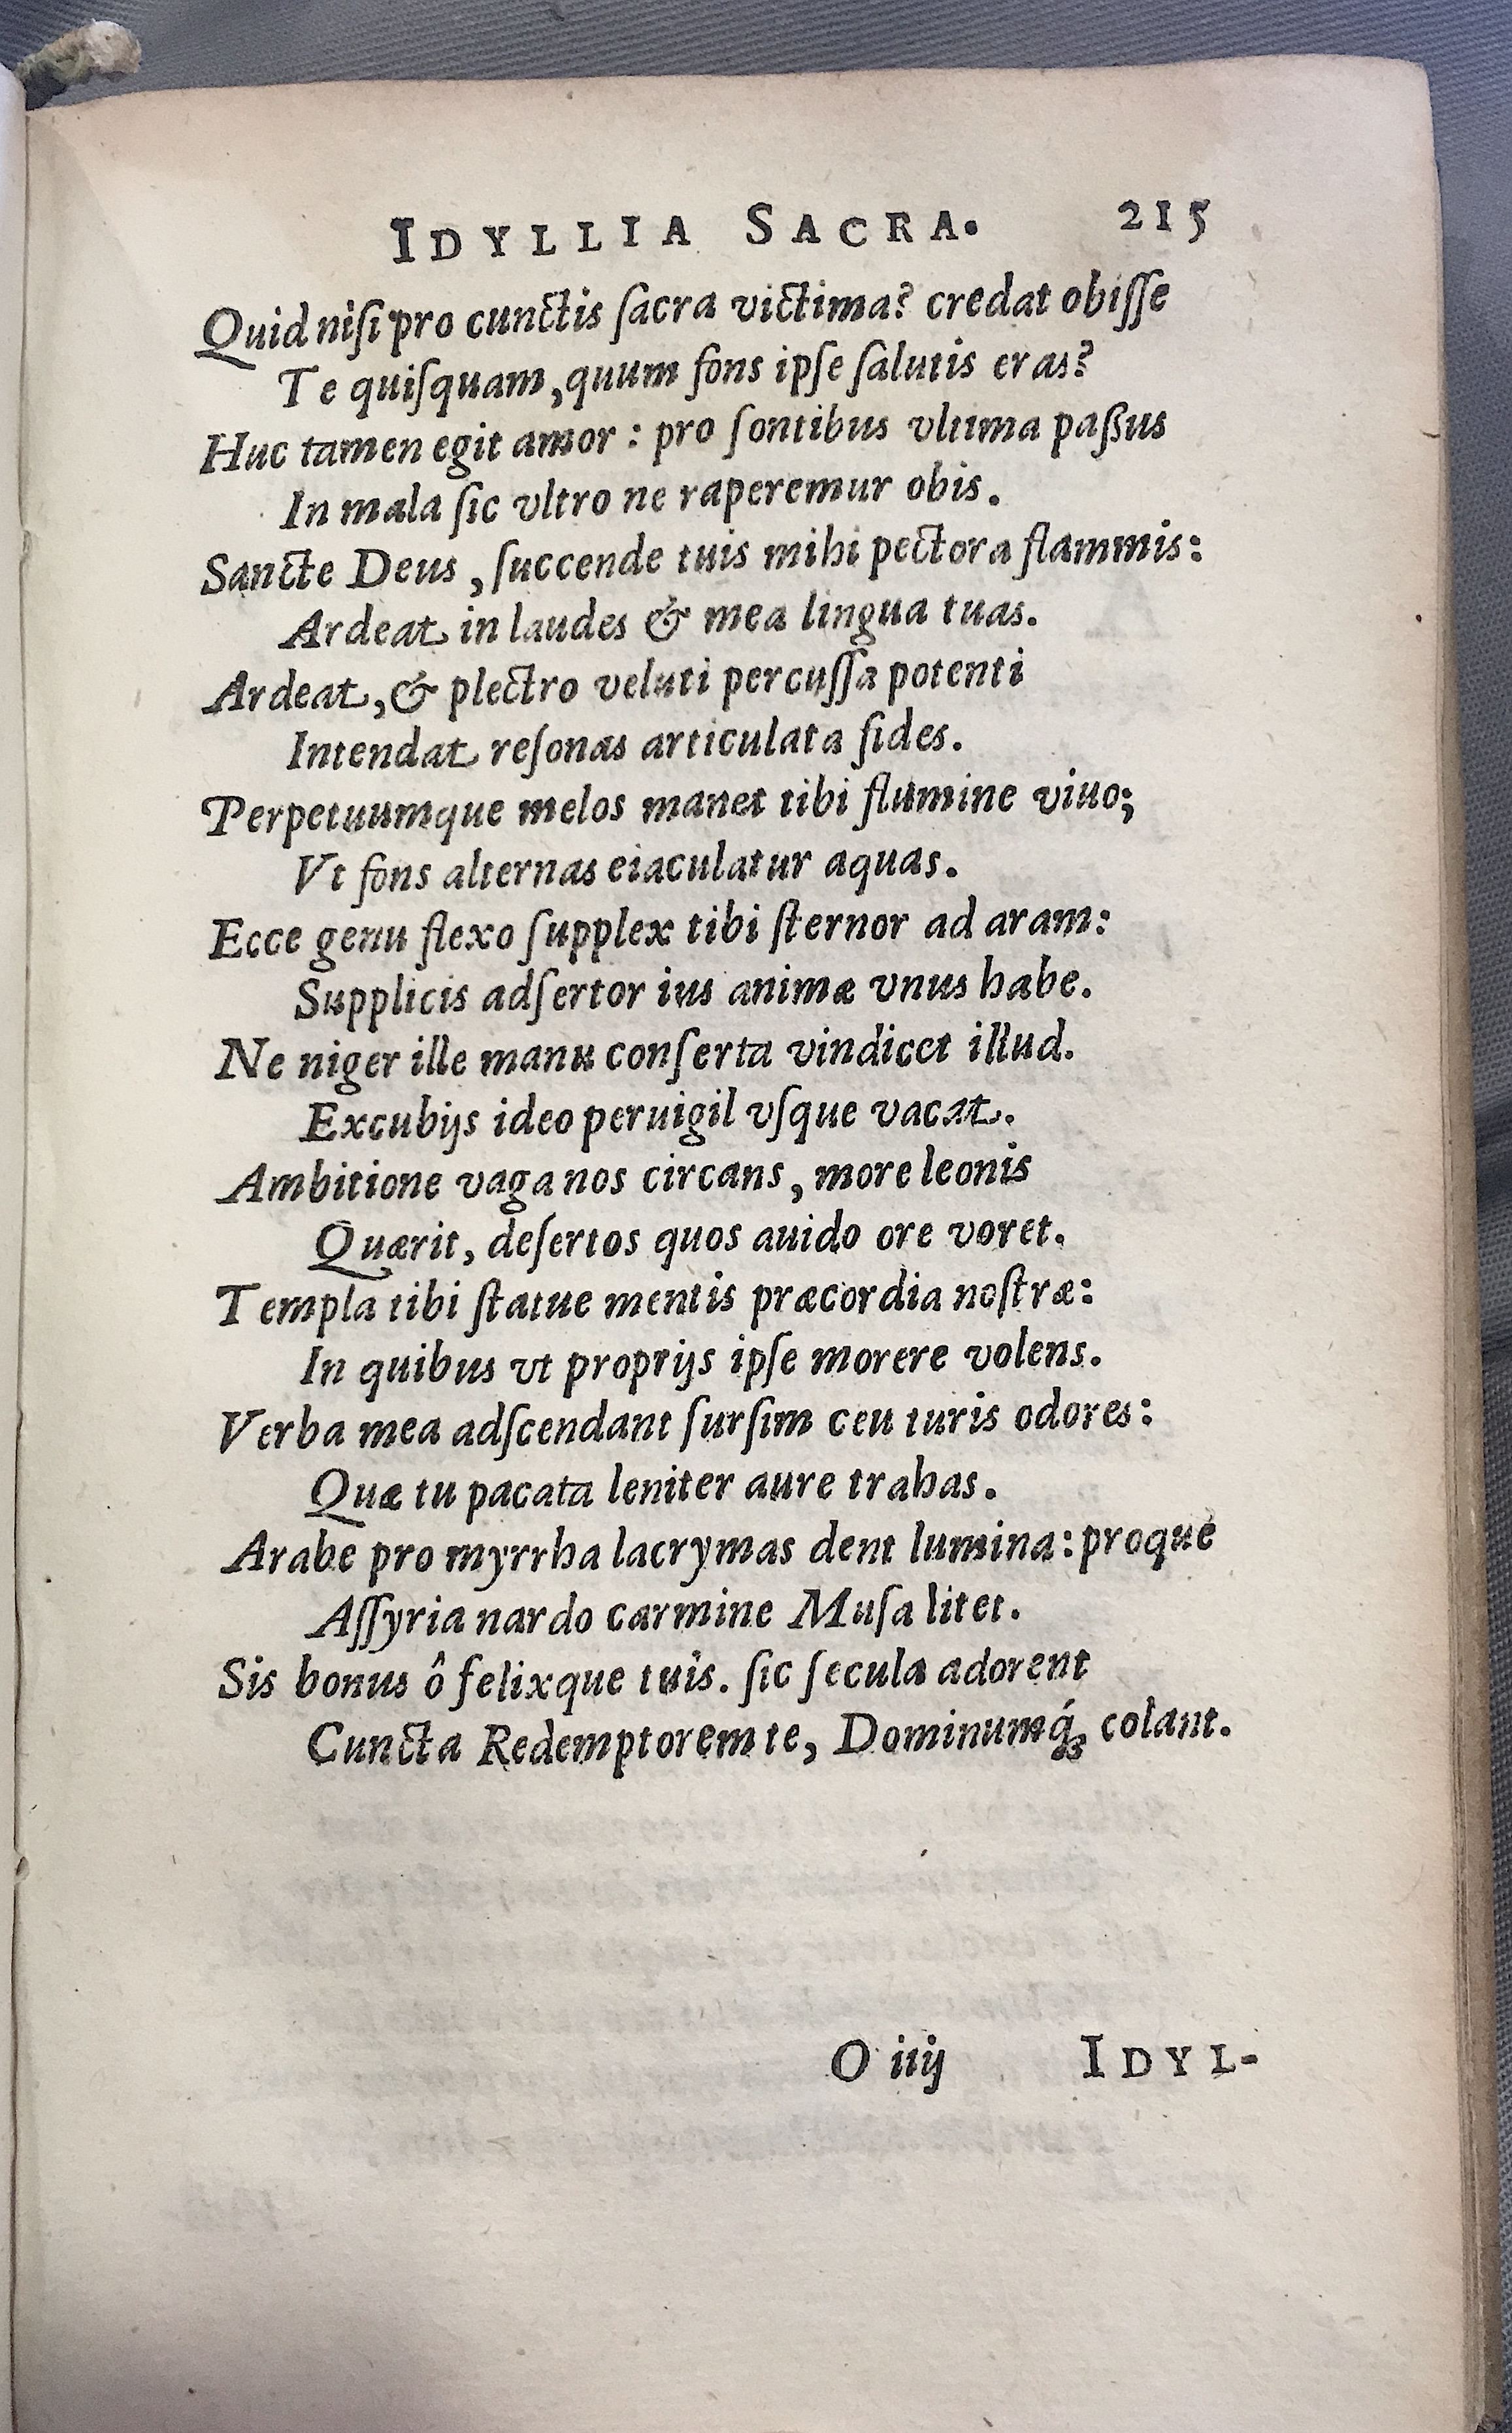 IDYLLIA SACRA. 215
Quid niſi pro cunctis ſacra victima? credat obiſſe
Te quiſquam, quum fons ipſe ſalutis eras?
Huc tamen egit amor: pro ſontibus vltima paßus
In mala ſic vltro ne raperemur obis.
Sancte Deus, ſuccende tuis mihi pectora flammis:
Ardeat in laudes & mea lingua tuas.
Ardeat, & plectro veluti percuſſa potenti
Intendat reſonas articulata fides.
Perpetuumque melos manet tibi flumine viuo;
Vt fons alternas eiaculatur aquas.
Ecce genu flexo ſupplex tibi ſternor ad aram:
Supplicis adſertor ius animæ vnus habe.
Ne niger ille manu conſerta vindicet illud.
Excubijs ideo peruigil vſque vacat.
Ambitione vaga nos circans, more leonis
Quærit, deſertos quos auido ore voret.
Templa tibi ſtatue mentis præcordia noſtræ:
In quibus vt proprijs ipſe morere volens.
Verba mea adſcendant ſurſim ceu turis odores:
Quæ tu pacata leniter aure trahas.
Arabe pro myrrha lacrymas dent lumina: proque
Aſſyria nardo carmine Muſa litet.
Sis bonus ô felixque tuis. ſic ſecula adorent
Cuncta Redemptorem te, Dominumq́ꝫ colant.
O iiij IDYL-